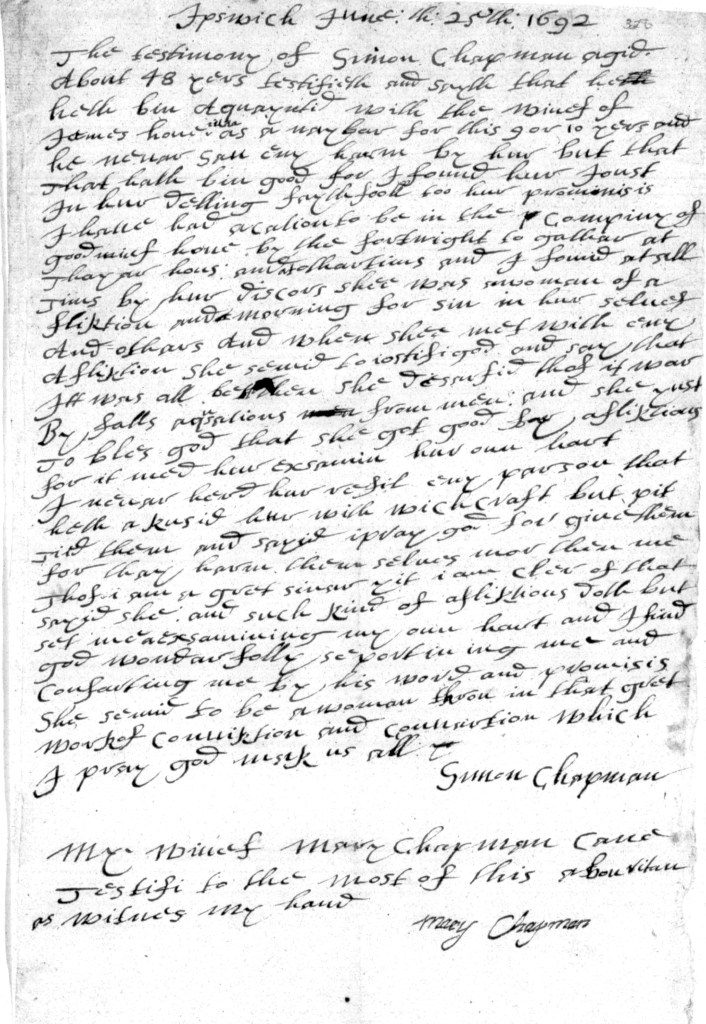 Ipswich June: th: 25th: 1692
The testimony of Simon Chapman agid
About 48 yers testifieth and sayth that he
heth bin Aquayntid with the wiuef of
James howe iunr as a naybar for this 9 or 10 yers and
he neuar saw eny harm by hur but that
That hath bin good for I found hur Joust
In hur delling faythfooll too hur promisis
I haue had acation to be in the Compiny of
goodwief howe by the fortnight to gathar at
Thayar hous and at othar tims and I found at all
Tims by hur discors shee was a woman of a
fliktion and morning for sin in hur seluef
And others And when shee met with eny
Afliktion she semid to iostifi god and say that
Itt was all better then she desarfid thof it war
By falls aqusations from men and she yust
To bles god that she got good by afliktions
for it med hur exsamin hur oun hart
I neuar herd hur refil eny parson that
heth akusid hur with wichcraft but pit
tied them and sayid i pray god forgiue them
for thay harm them selues mor then me
Thof i am a gret sinar yit i am cler of that
sayid she and such kind of afliktions doth but
set me aexsamining my oun hart and I find
god wondarfolly seportining me and
Comfarting me by his word and promisis
She semid to be a woman thron in that gret
work of conuiktion and conuartion which
I pray god mak us all
Simon Chapman
My wiuef Mary Chapman Cane
Testifi to the most of this abou ritan
as witnes my hand
Mary Chapman